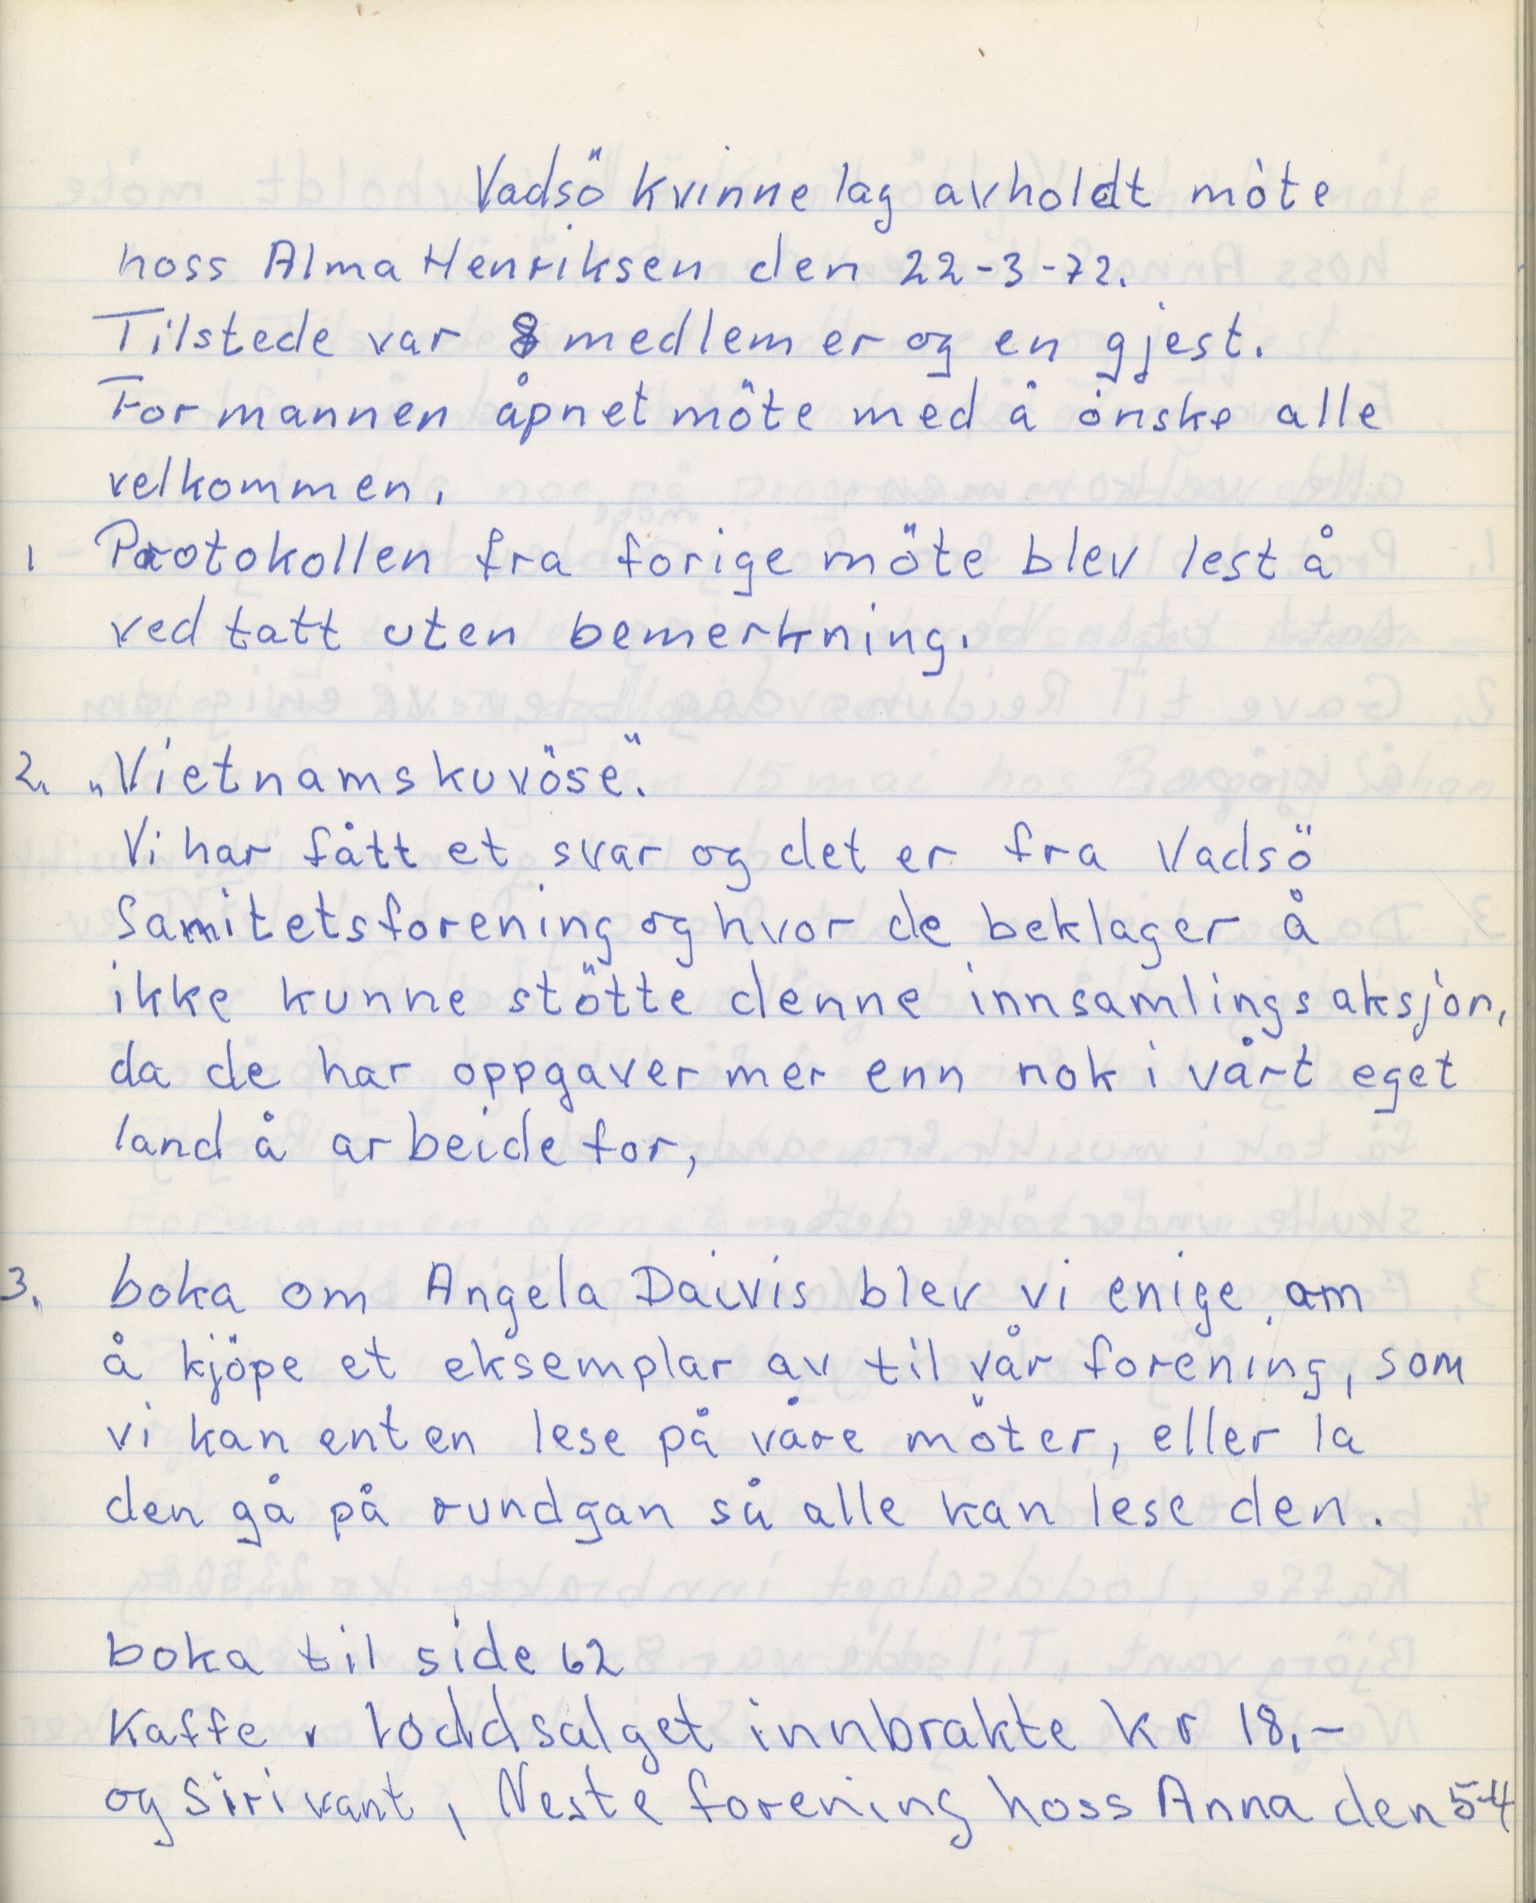 Vadsö kvinnelag avholdt möte
hoss Alma Henriksen den 22-3-72.
Tilstede var 8 medlemer og en gjest.
Formannen åpnet möte med å önske alle
velkommen.
1 Protokollen fra forige möte blev lest å
vedtatt uten bemerkning.
2. „Vietnamskuvöse".
Vi har fått et svar og det er fra Vadsö
Sanitetsforening og hvor de beklager å
ikke kunne stötte denne innsamlingsaksjon,
da de har oppgaver mer enn nok i vårt eget
land å arbeide for,
3. boka om Angela Daivis blev vi enige om
å kjöpe et eksemplar av til vår forening, som
vi kan enten lese på våre möter, eller la
den gå på rundgan så alle kan lese den.
boka til side 62
Kaffe, loddsalget innbrakte kr 18,-
og Siri vant, Neste forening hoss Anna den 5-4